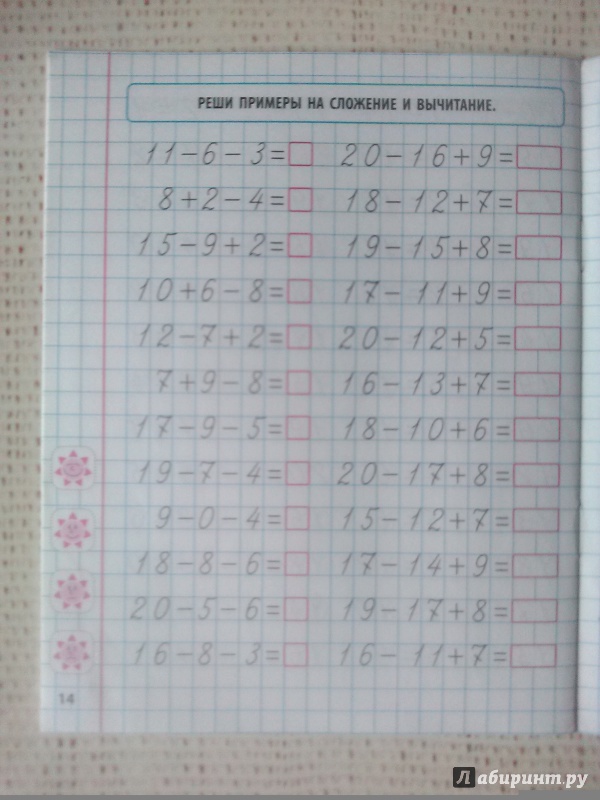 РЕШИ ПРИМЕРЫ НА СЛОЖЕНИЕ И ВЫЧИТАНИЕ.
11-6-3= 20-16+9=
8+2-4= 18-12+7=
15-9+2= 19-15+8=
10+6-8= 17-11+9=
12-7+2= 20-12+5=
7+9-8= 16-13+7=
17-9-5= 18-10+6=
19-7-4= 20-17+8=
9-0-4= 15-12+7=
18-8-6= 17-14+9=
20-5-6= 19-17+8=
16-8-3= 16-11+7=
14
Лабиринт.ру